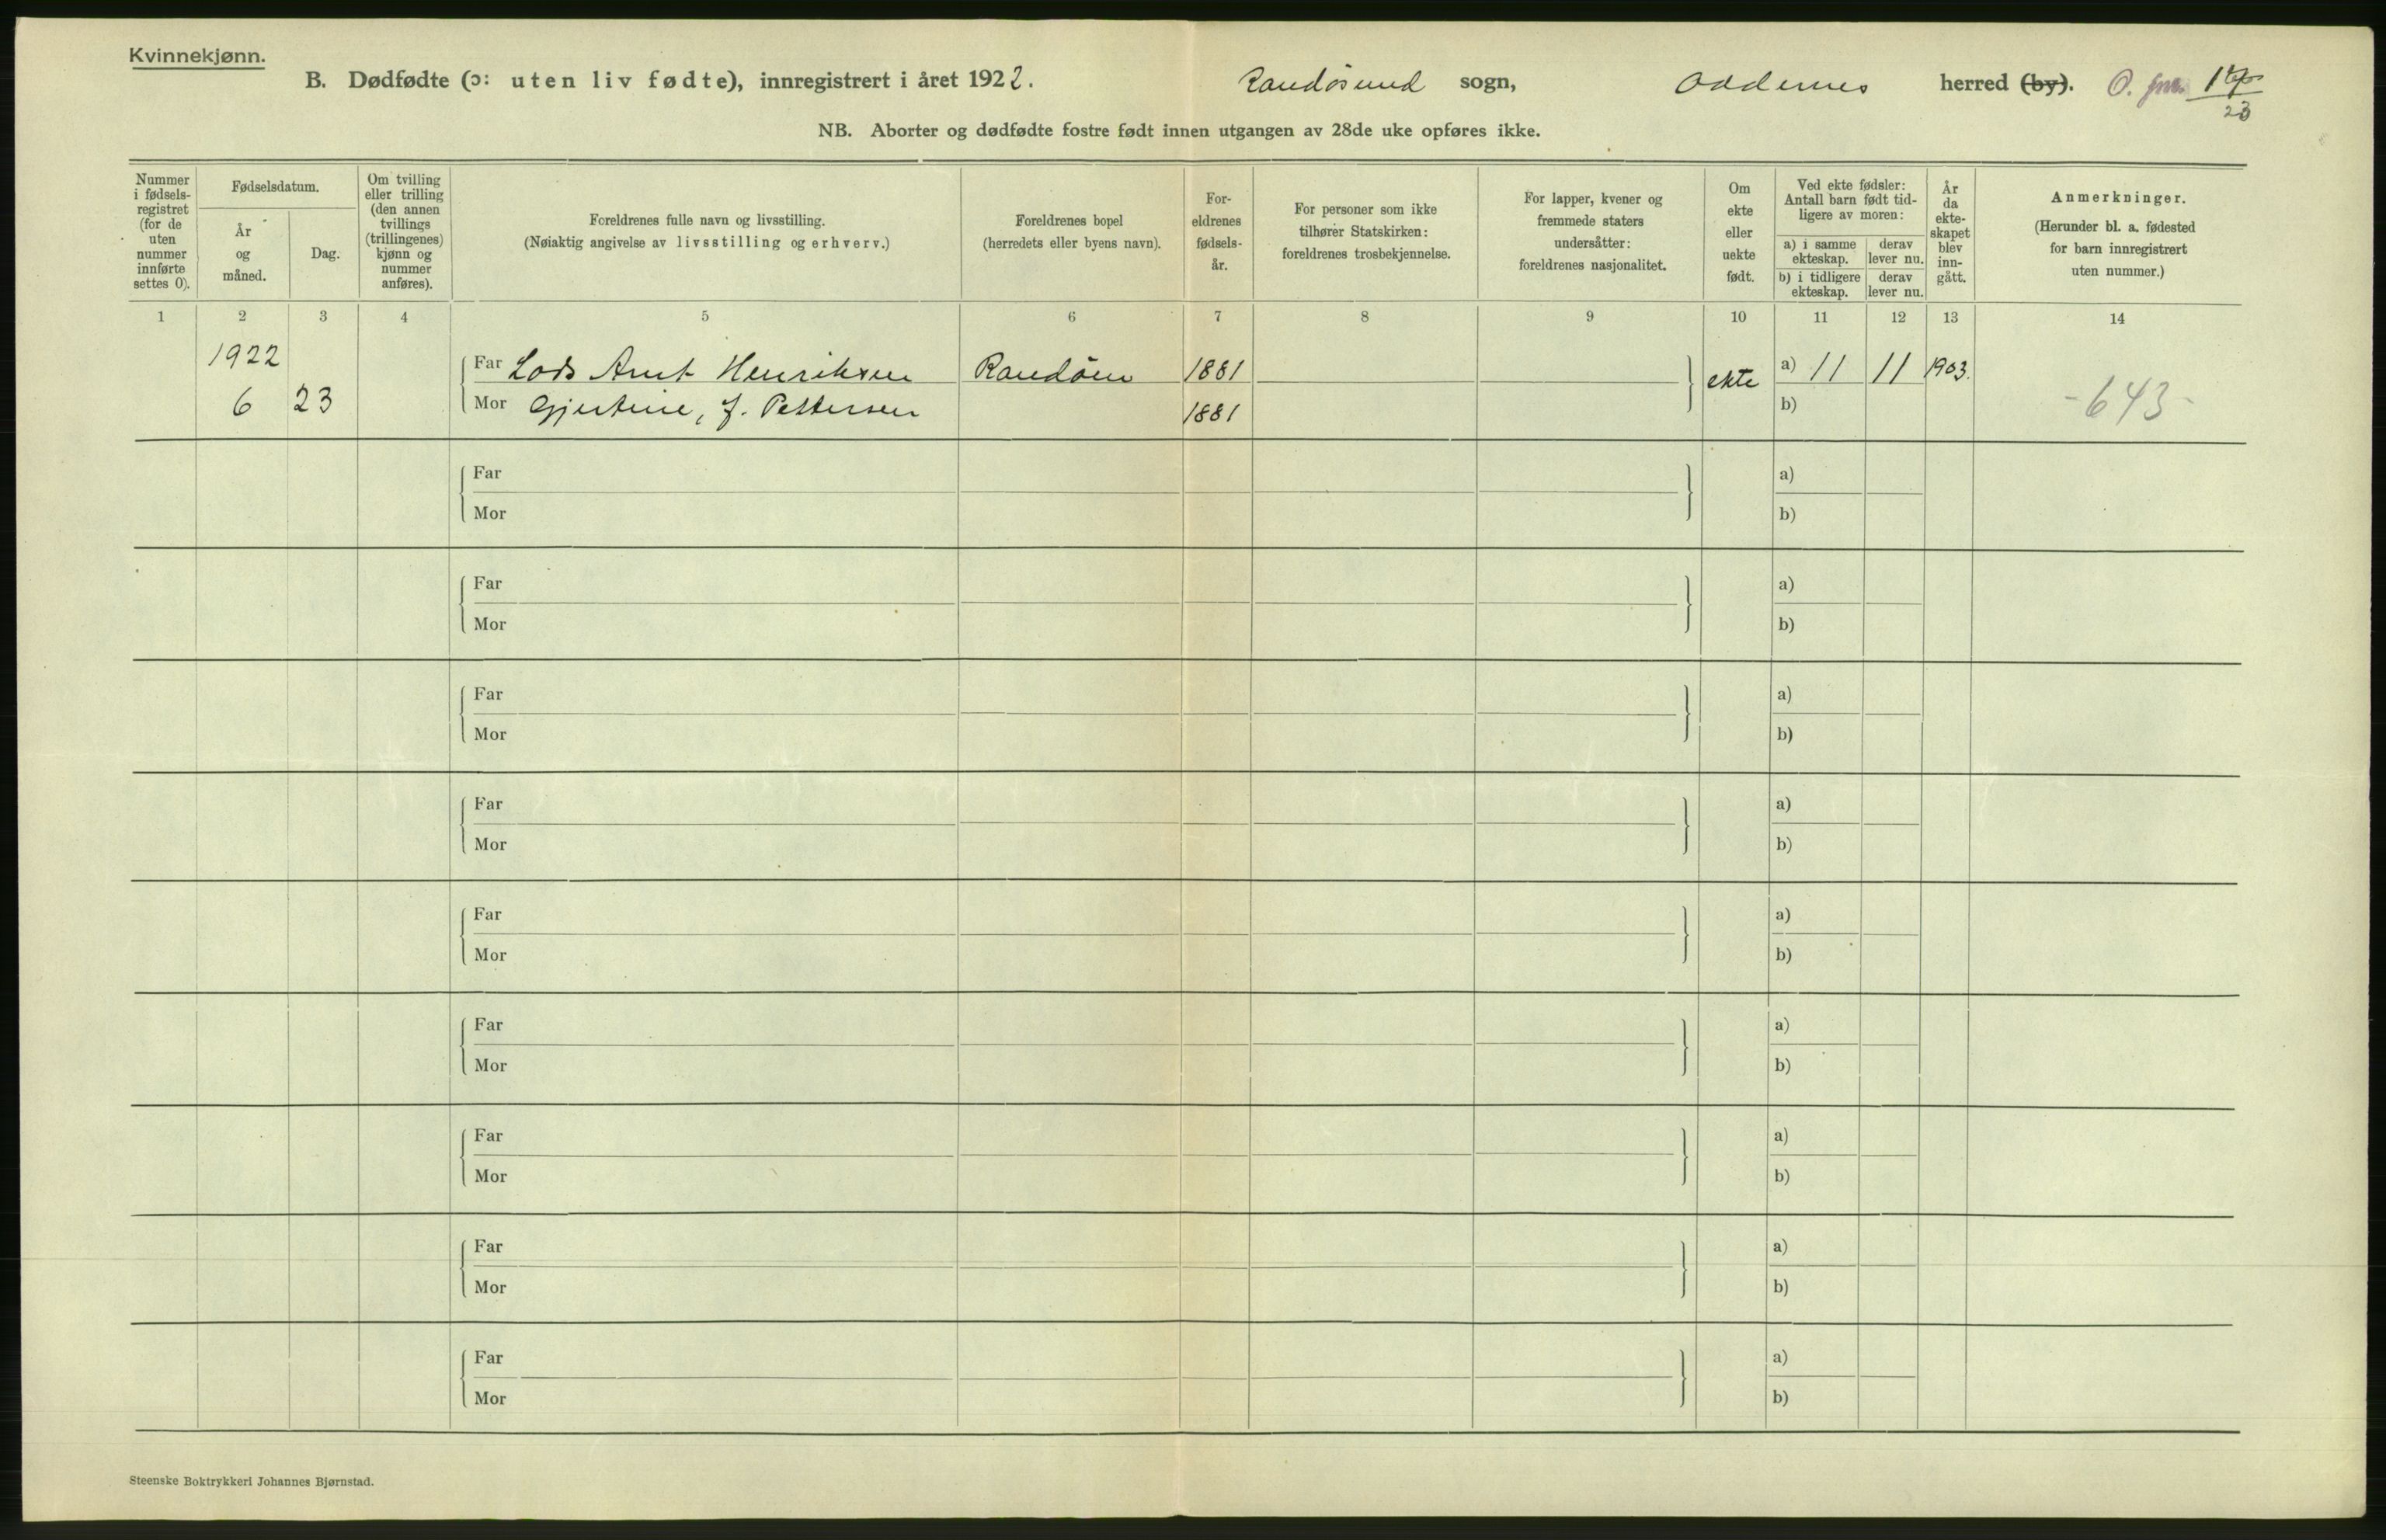 Kvinnekjønn.
B. Dødfødte (ɔ: uten liv fødte), innregistrert i året 1922. Randøsund sogn, Oddernes herred (by).
23
NB. Aborter og dødfødte fostre født innen utgangen av 28de uke opføres ikke.
Nummer i fødsels-registret (for de uten nummer innførte settes 0).
Fødselsdatum.
År og måned.
Dag.
Om tvilling eller trilling (den annen tvillings (trillingenes) kjønn og nummer anføres).
Foreldrenes fulle navn og livsstilling.
(Nøiaktig angivelse av livsstilling og erhverv.)
Foreldrenes bopel
(herredets eller byens navn).
For-eldrenes fødsels-år.
For personer som ikke tilhører Statskirken: foreldrenes trosbekjennelse.
For lapper, kvener og fremmede staters undersåtter: foreldrenes nasjonalitet.
Om ekte eller uekte født.
Ved ekte fødsler: Antall barn født tid-ligere av moren:
a) i samme ekteskap.
derav lever nu.
b) i tidligere ekteskap.
derav lever nu.
År da ekte-skapet blev inn-gått.
Anmerkninger.
(Herunder bl. a. fødested for barn innregistrert uten nummer.)
1 2 3 4 5 6 7 8 9 10 11 12 13 14
1922
Far Lods Arnt Henriksen Randöen 1881 ekte a) 11 11 1903.
6 23 Mor Gjertine, f. Pettersen 1881 b) -643-
Far a)
Mor b)
Far a)
Mor b)
Far a)
Mor b)
Far a)
Mor b)
Far a)
Mor b)
Far a)
Mor b)
Far a)
Mor b)
Far a)
Mor b)
Far a)
Mor b)
Steenske Boktrykkeri Johannes Bjørnstad.